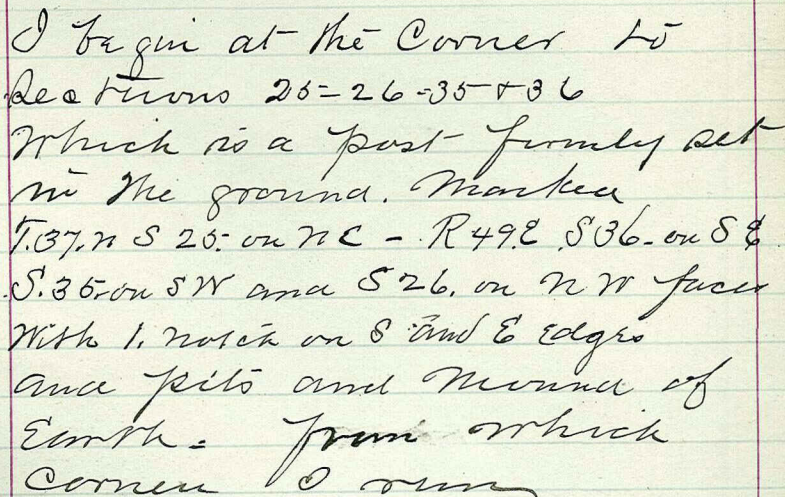 I begin at the Corner to
Sections 25-26-35+36
Which is a post firmly set
in the ground. Marked
T.37.N S 25. on NE - R49.E S36. on SE
S.35. on SW and S26. on NW faces
With 1. notch on S and E Edges
and pits and Mound of
Earth - from which
Corner I run